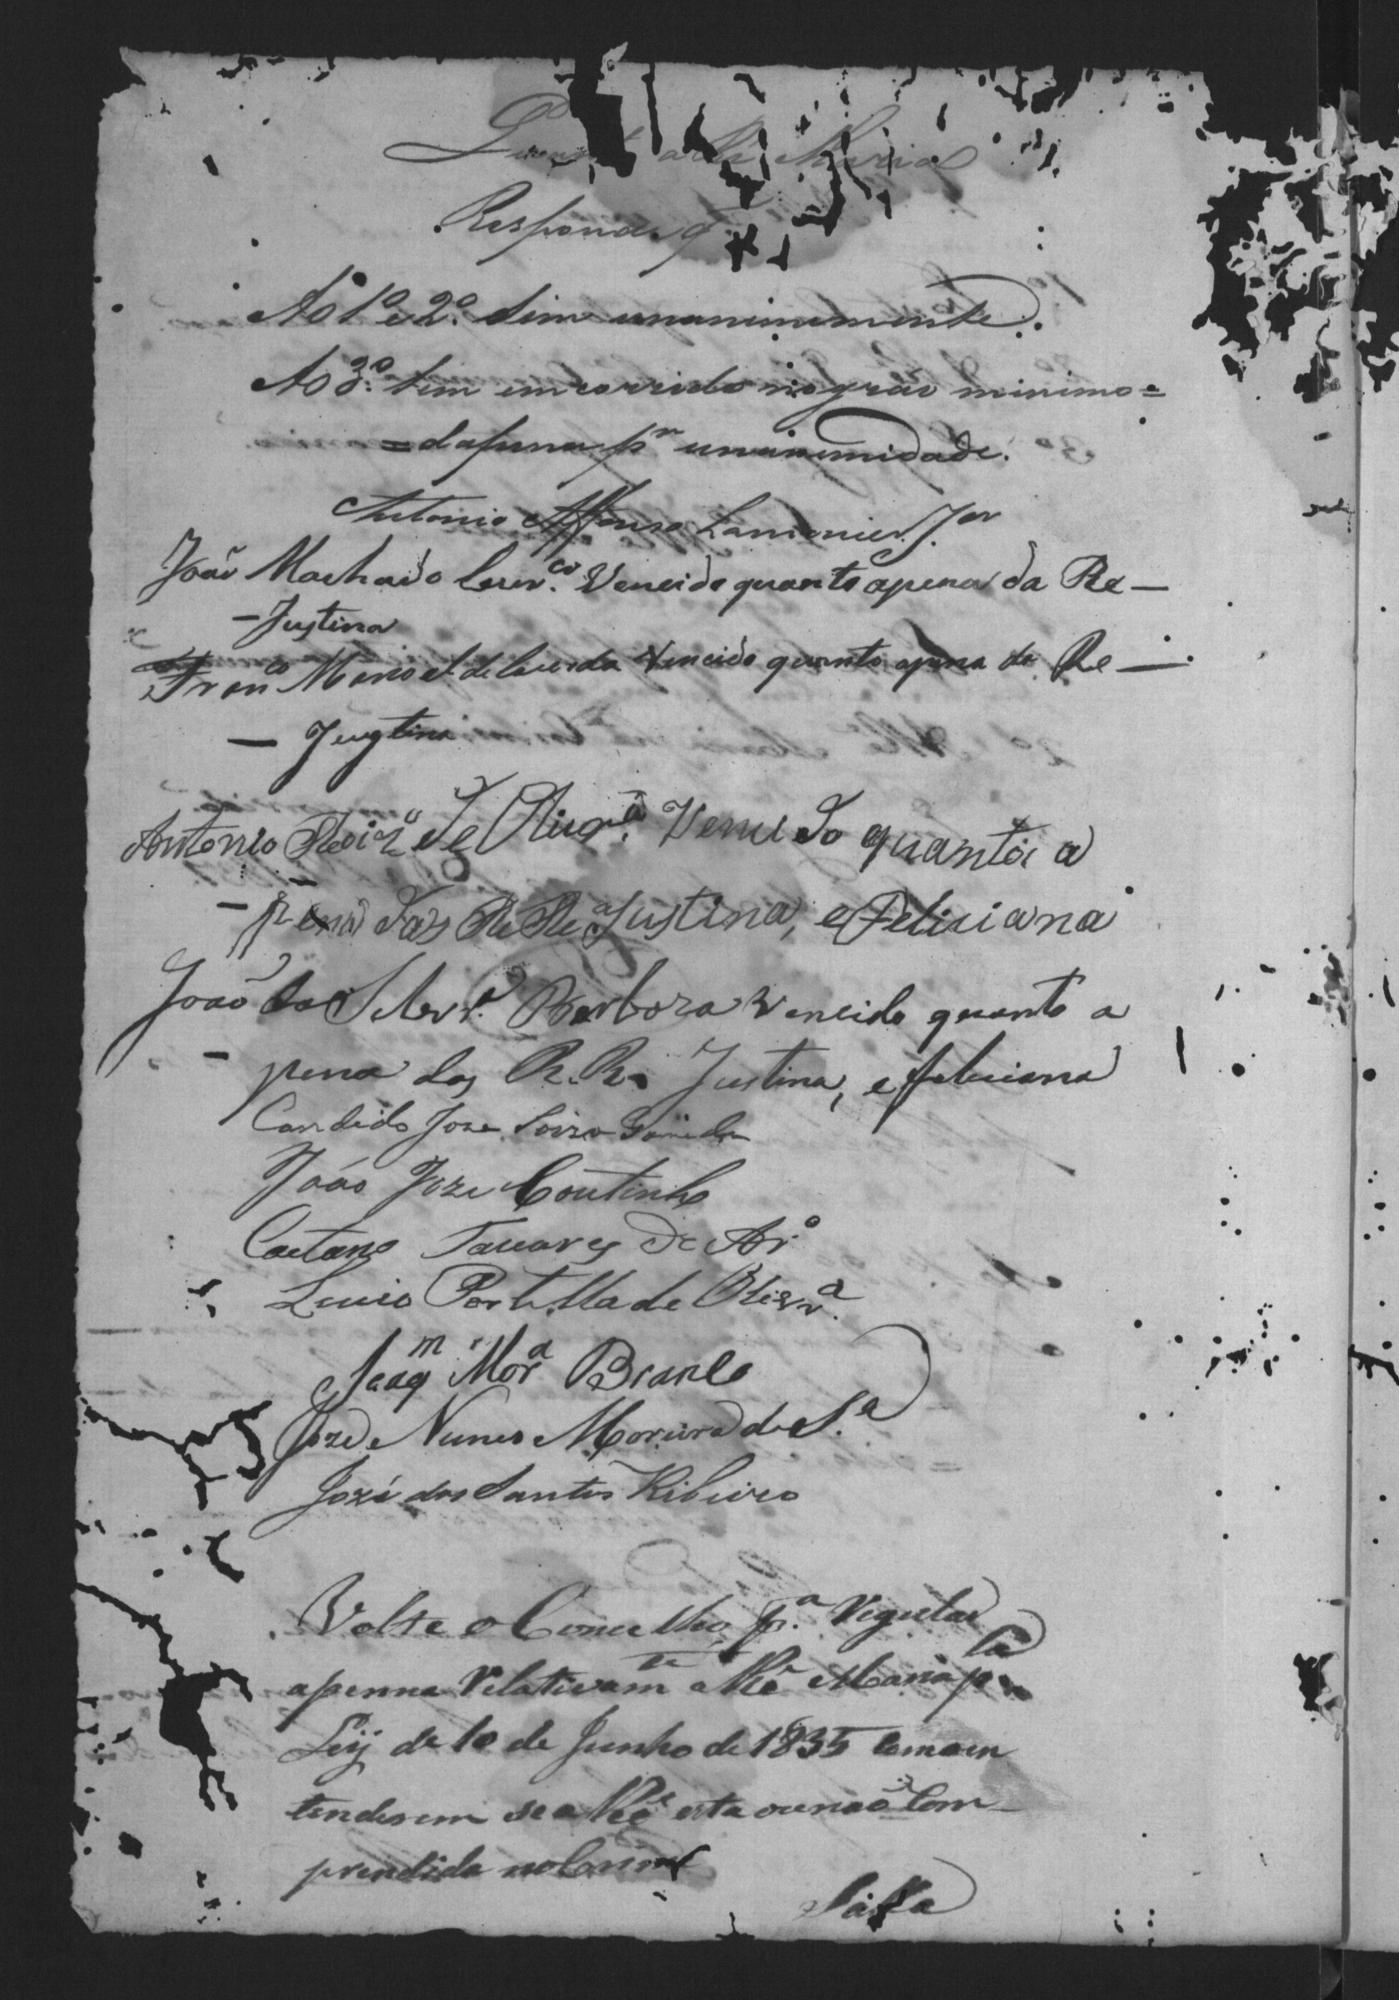 Quant á Ré Maria
Responde q
Ao 1º e 2º. Sim unanimemente.
Ao 3º. tem incorrido no gráo minimo =
= da pena pr unanimidade.
Antonio Affonso Lamonier Jor
João Machado Vencido quanto a pena da Re —
— Justina
Franco Manoel de Lacerda Vencido quanto apena da Re —
— Justina
Antonio Roiz de Olivra. Vencido quanto a
— pena das Re Re Justina, e Feliciana
João da Silvra. Barboza Vencido quanto a
— pena das R.R. Justina, e feliciana
Candido Joze
João Joze Coutinho
Caetano Tavares de Aro
Lucio Portella de Olivra
Joaqm Mora Branco
Joze Nunes Moreira de Sa
José dos Santos Ribeiro
Volte o Concelho pa. Regular
apenna Relativamte a Ré Maria pela
Leÿ de 10 de Junho de 1835 como en
tenderem se a Ré esta ou não Com-
prendida no Crime